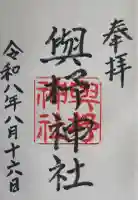 奉拝
與杼神社
令和八年八月十六日